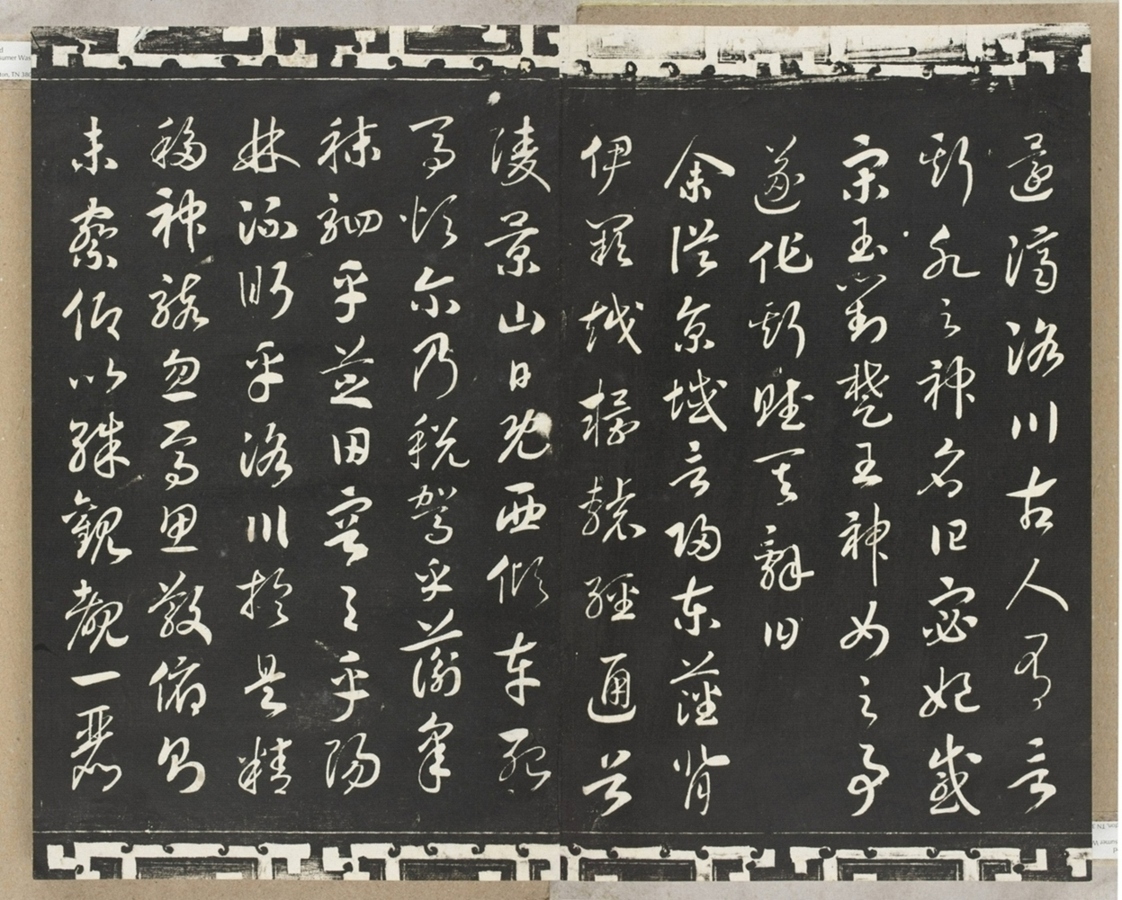 還濟洛川古人有言
斯水之神名曰宓妃感
宋玉對楚王神女之事
遂作斯賦其辭曰
余從京域言歸東藩背
伊闕越轘轅經通谷
陵景山日既西傾車殆
馬煩尔乃稅駕乎蘅皋
秣駟乎芝田容與乎陽
林流眄乎洛川於是精
移神駭忽焉思散俯則
未察仰以殊觀覩一麗